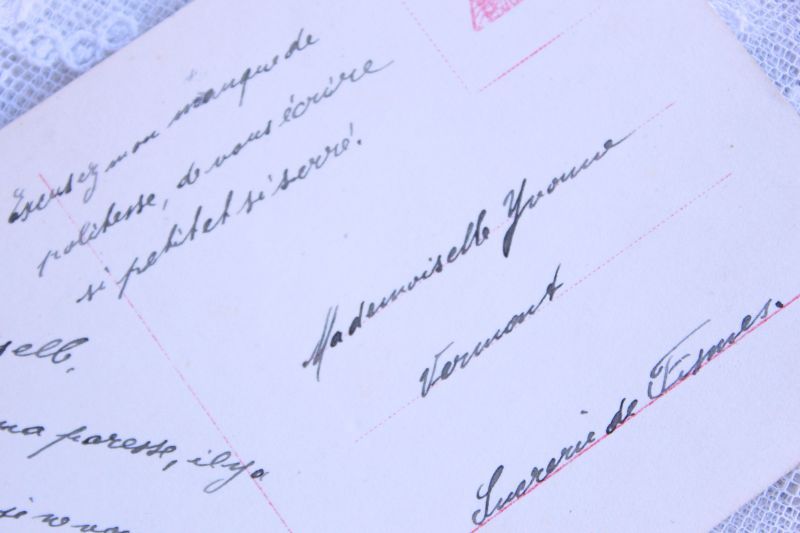 Excusez mon manque de
politesse, de vous écrire
si petit et si serré.
Mademoiselle Yvonne
Vermont
Sucrerie de Fismes.
ma paresse, il y a